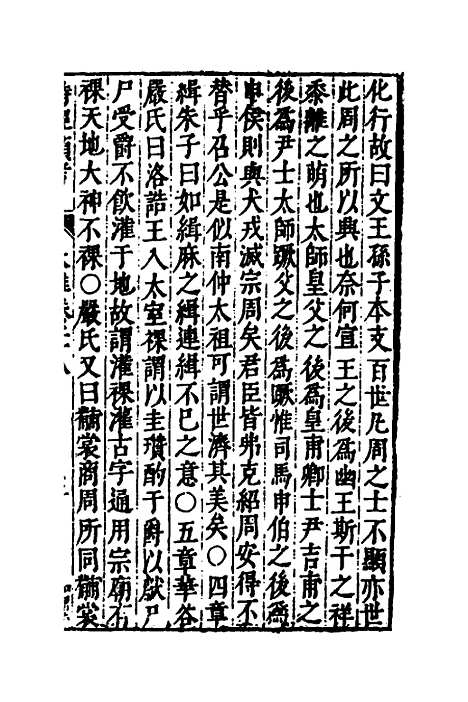 化行故曰文王孫子本支百世凡周之士不顯亦世
此周之所以興也奈何宣王之後爲幽王斯干之祥
黍離之萌也太師皇父之後爲皇甫卿士尹吉甫之
後爲尹士太師蹶父之後爲蹶惟司馬申伯之後爲
申侯則與犬戎滅宗周矣君臣皆弗克紹周安得不
替乎召公是似南仲太祖可謂世濟其美矣○四章
緝朱子曰如緝麻之緝連緝不已之意○五章華谷
嚴氏曰洛誥王入太室祼謂以圭瓚酌于爵以獻尸
尸受爵不飲灌于地故謂灌祼灌古字通用宗廟有
祼天地大神不祼○嚴氏又曰黼裳商周所同黼裳